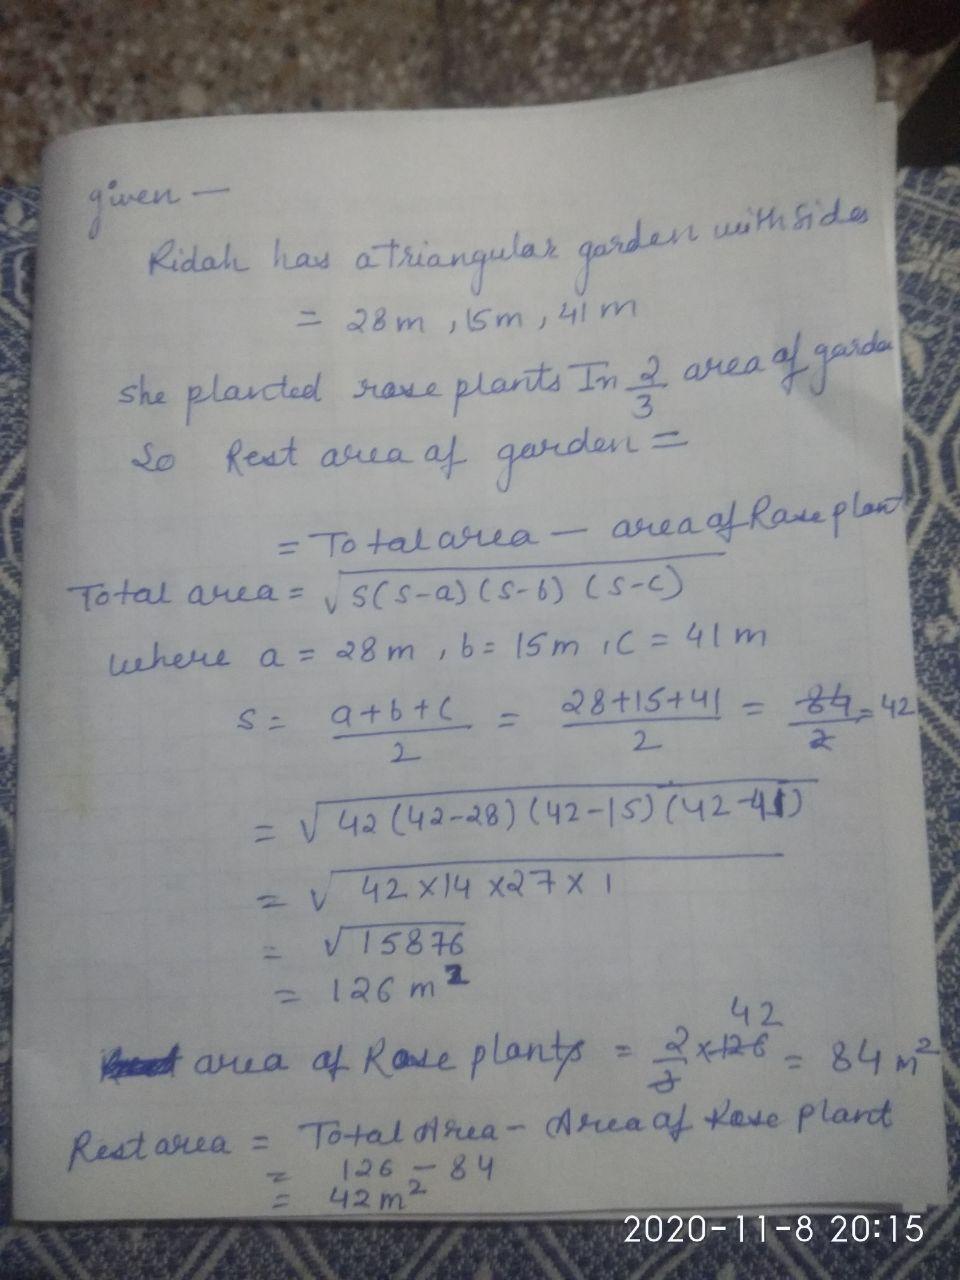 given —
Ridah has a triangular garden with sides
= 28m , 15m , 41 m
She planted rose plants In 2/3 area of garden
So Rest area of garden =
= Total area — area of Rose plant
Total area = √s(s-a) (s-b) (s-c)
where a = 28m , b = 15m , c = 41 m
s = a+b+c/2 = 28+15+41/2 = 84/2 = 42
= √42 (42-28) (42-15) (42-41)
= √42 ×14 ×27 × 1
= √15876
= 126 m²
42
area of Rose plants = 2/3 × 126 = 84 m²
Rest area = Total Area - Area of Rose plant
= 126 - 84
= 42 m²
2020-11-8 20:15